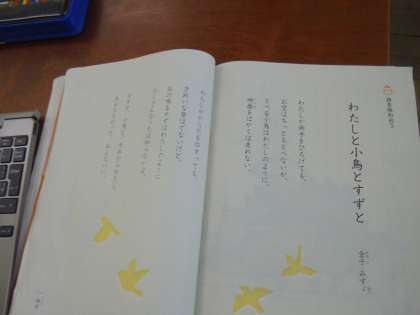 詩を味わおう
わたしと小鳥とすずと
金子 みすゞ
わたしが両手をひろげても、
お空はちっともとべないが、
とべる小鳥はわたしのように、
地面をはやくは走れない。
わたしがからだをゆすっても、
きれいな音はでないけど、
あの鳴るすずはわたしのように
たくさんなうたは知らないよ。
すずと、小鳥と、それからわたし、
みんなちがって、みんないい。